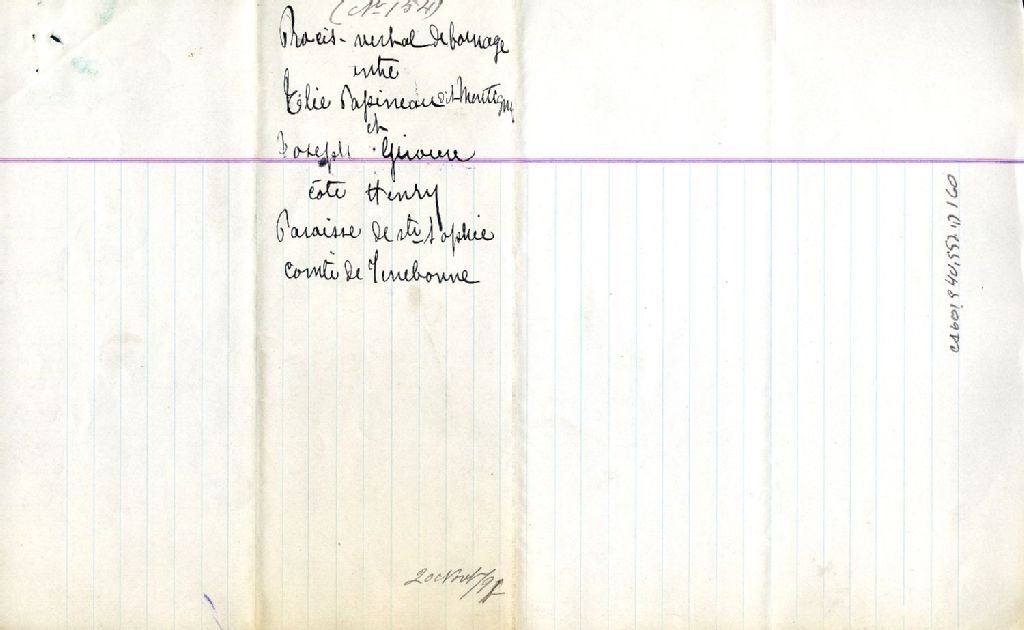 (No 154)
Procès-verbal de bornage
entre
Élie Papineau dit Montigny
et
Joseph Giroux
côte Henry
Paroisse de Ste Sophie
comté de Terrebonne
20 Novr/97